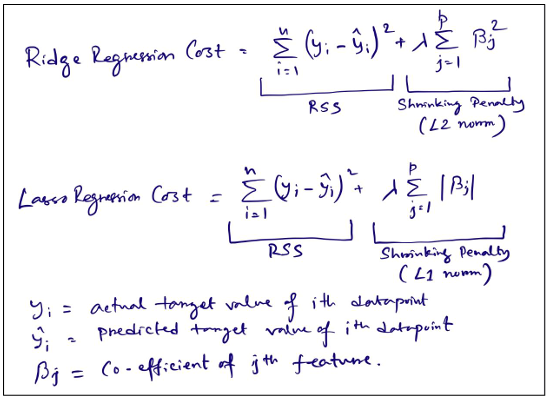 Ridge Regression Cost = n∑i=1 (yi - ŷi)² + λ p∑j=1 βj²
RSS
Shrinking Penalty
(L2 norm)
Lasso Regression Cost = n∑i=1 (yi - ŷi)² + λ p∑j=1 |βj|
RSS
Shrinking Penalty
(L1 norm)
yi = actual target value of ith datapoint
ŷi = predicted target value of ith datapoint
βj = Co-efficient of jth feature.